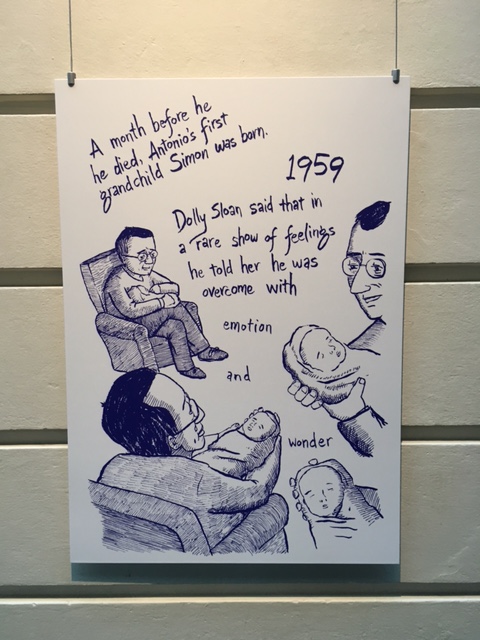 A month before he
he died, Antonio's first
grandchild Simon was born.
1959
Dolly Sloan said that in
a rare show of feelings
he told her he was
overcome with
emotion
and
wonder